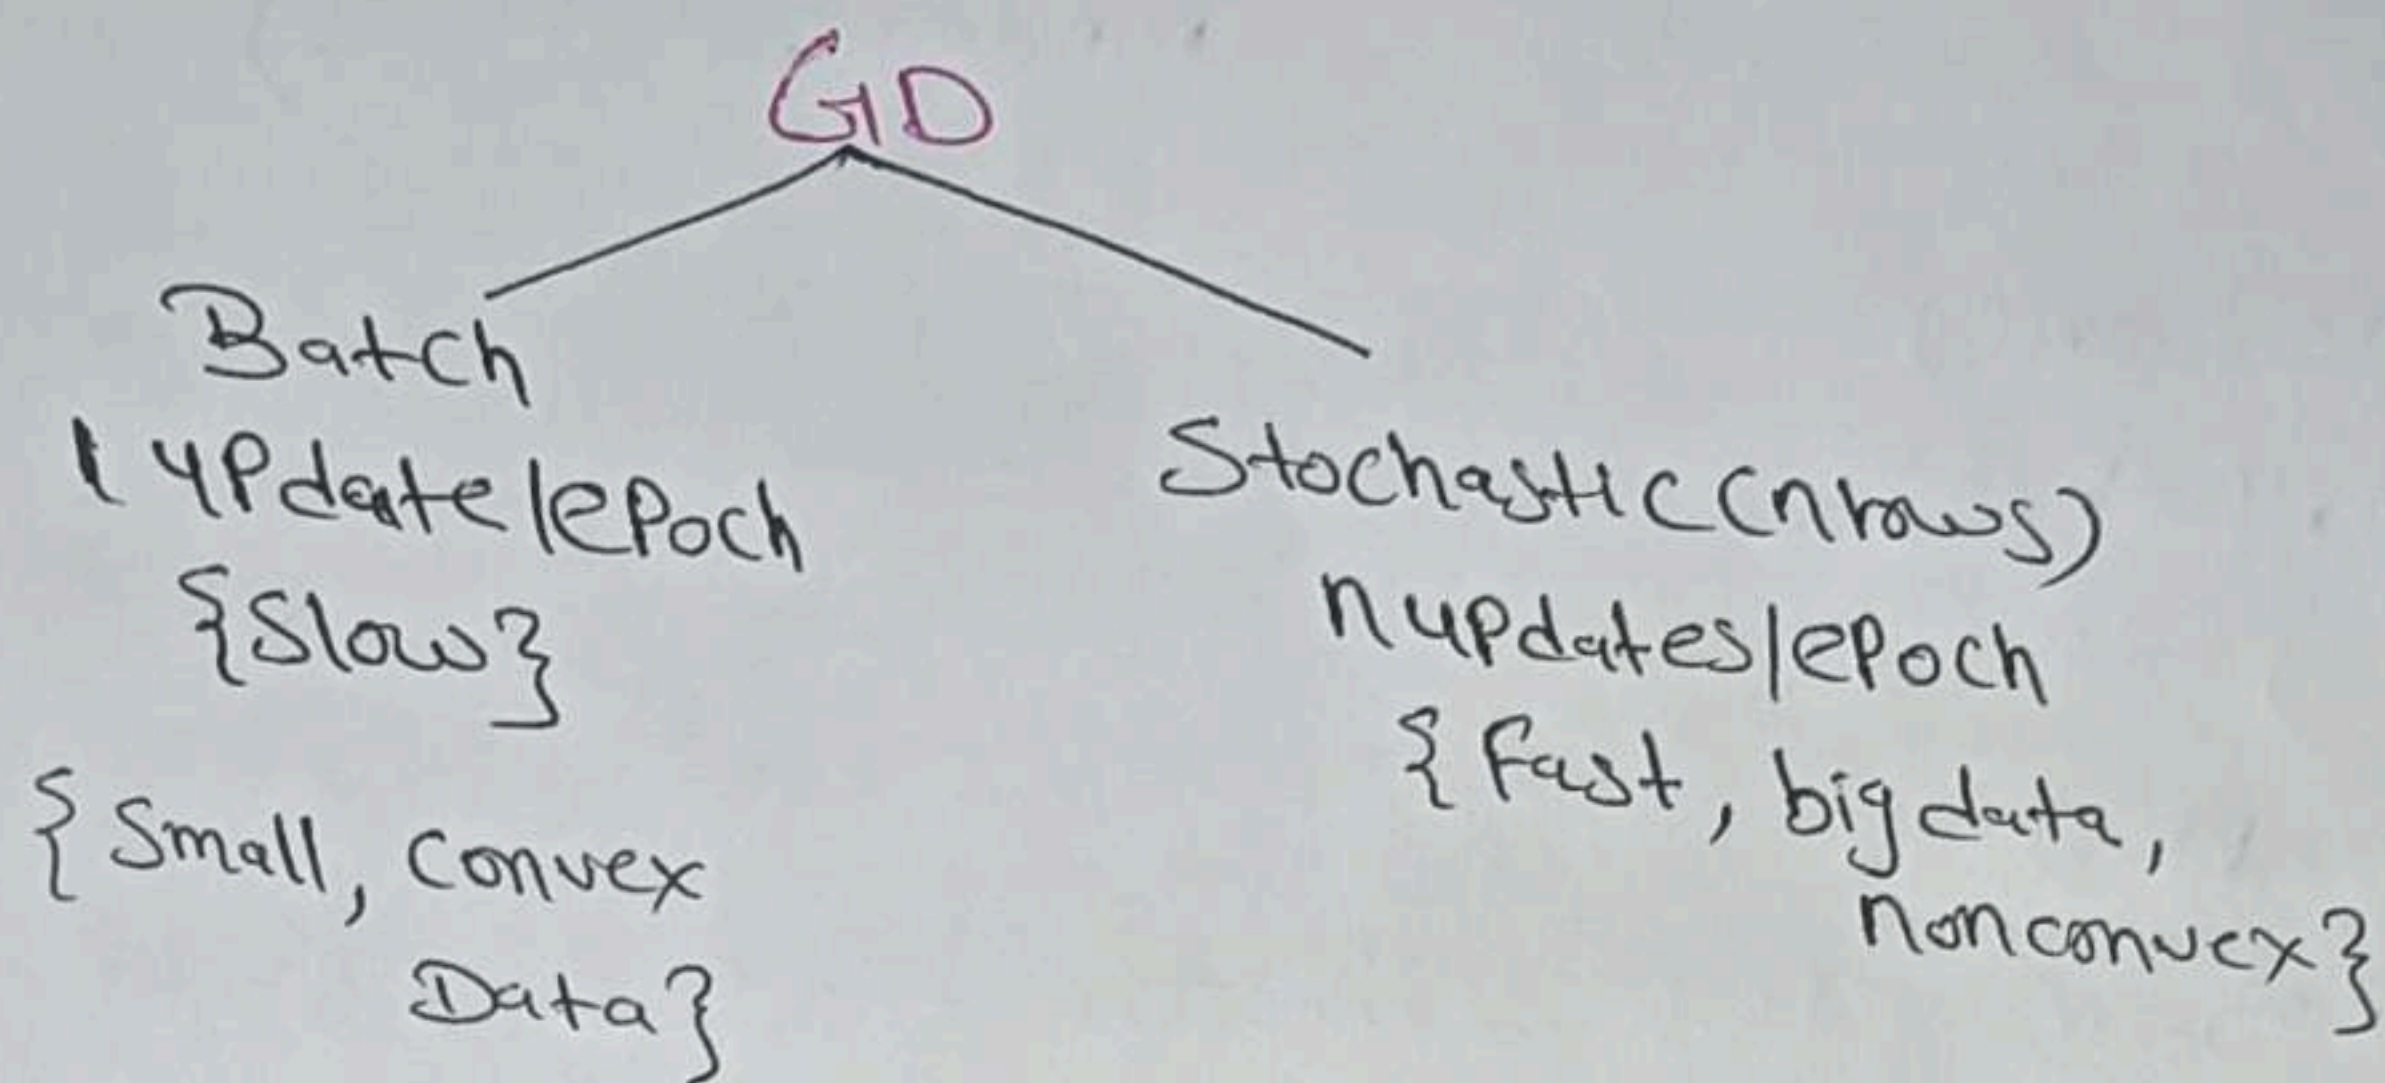 GD
Batch
1 update/epoch
{Slow}
{Small, convex
Data}
Stochastic (n rows)
n updates/epoch
{Fast, big data,
nonconvex}